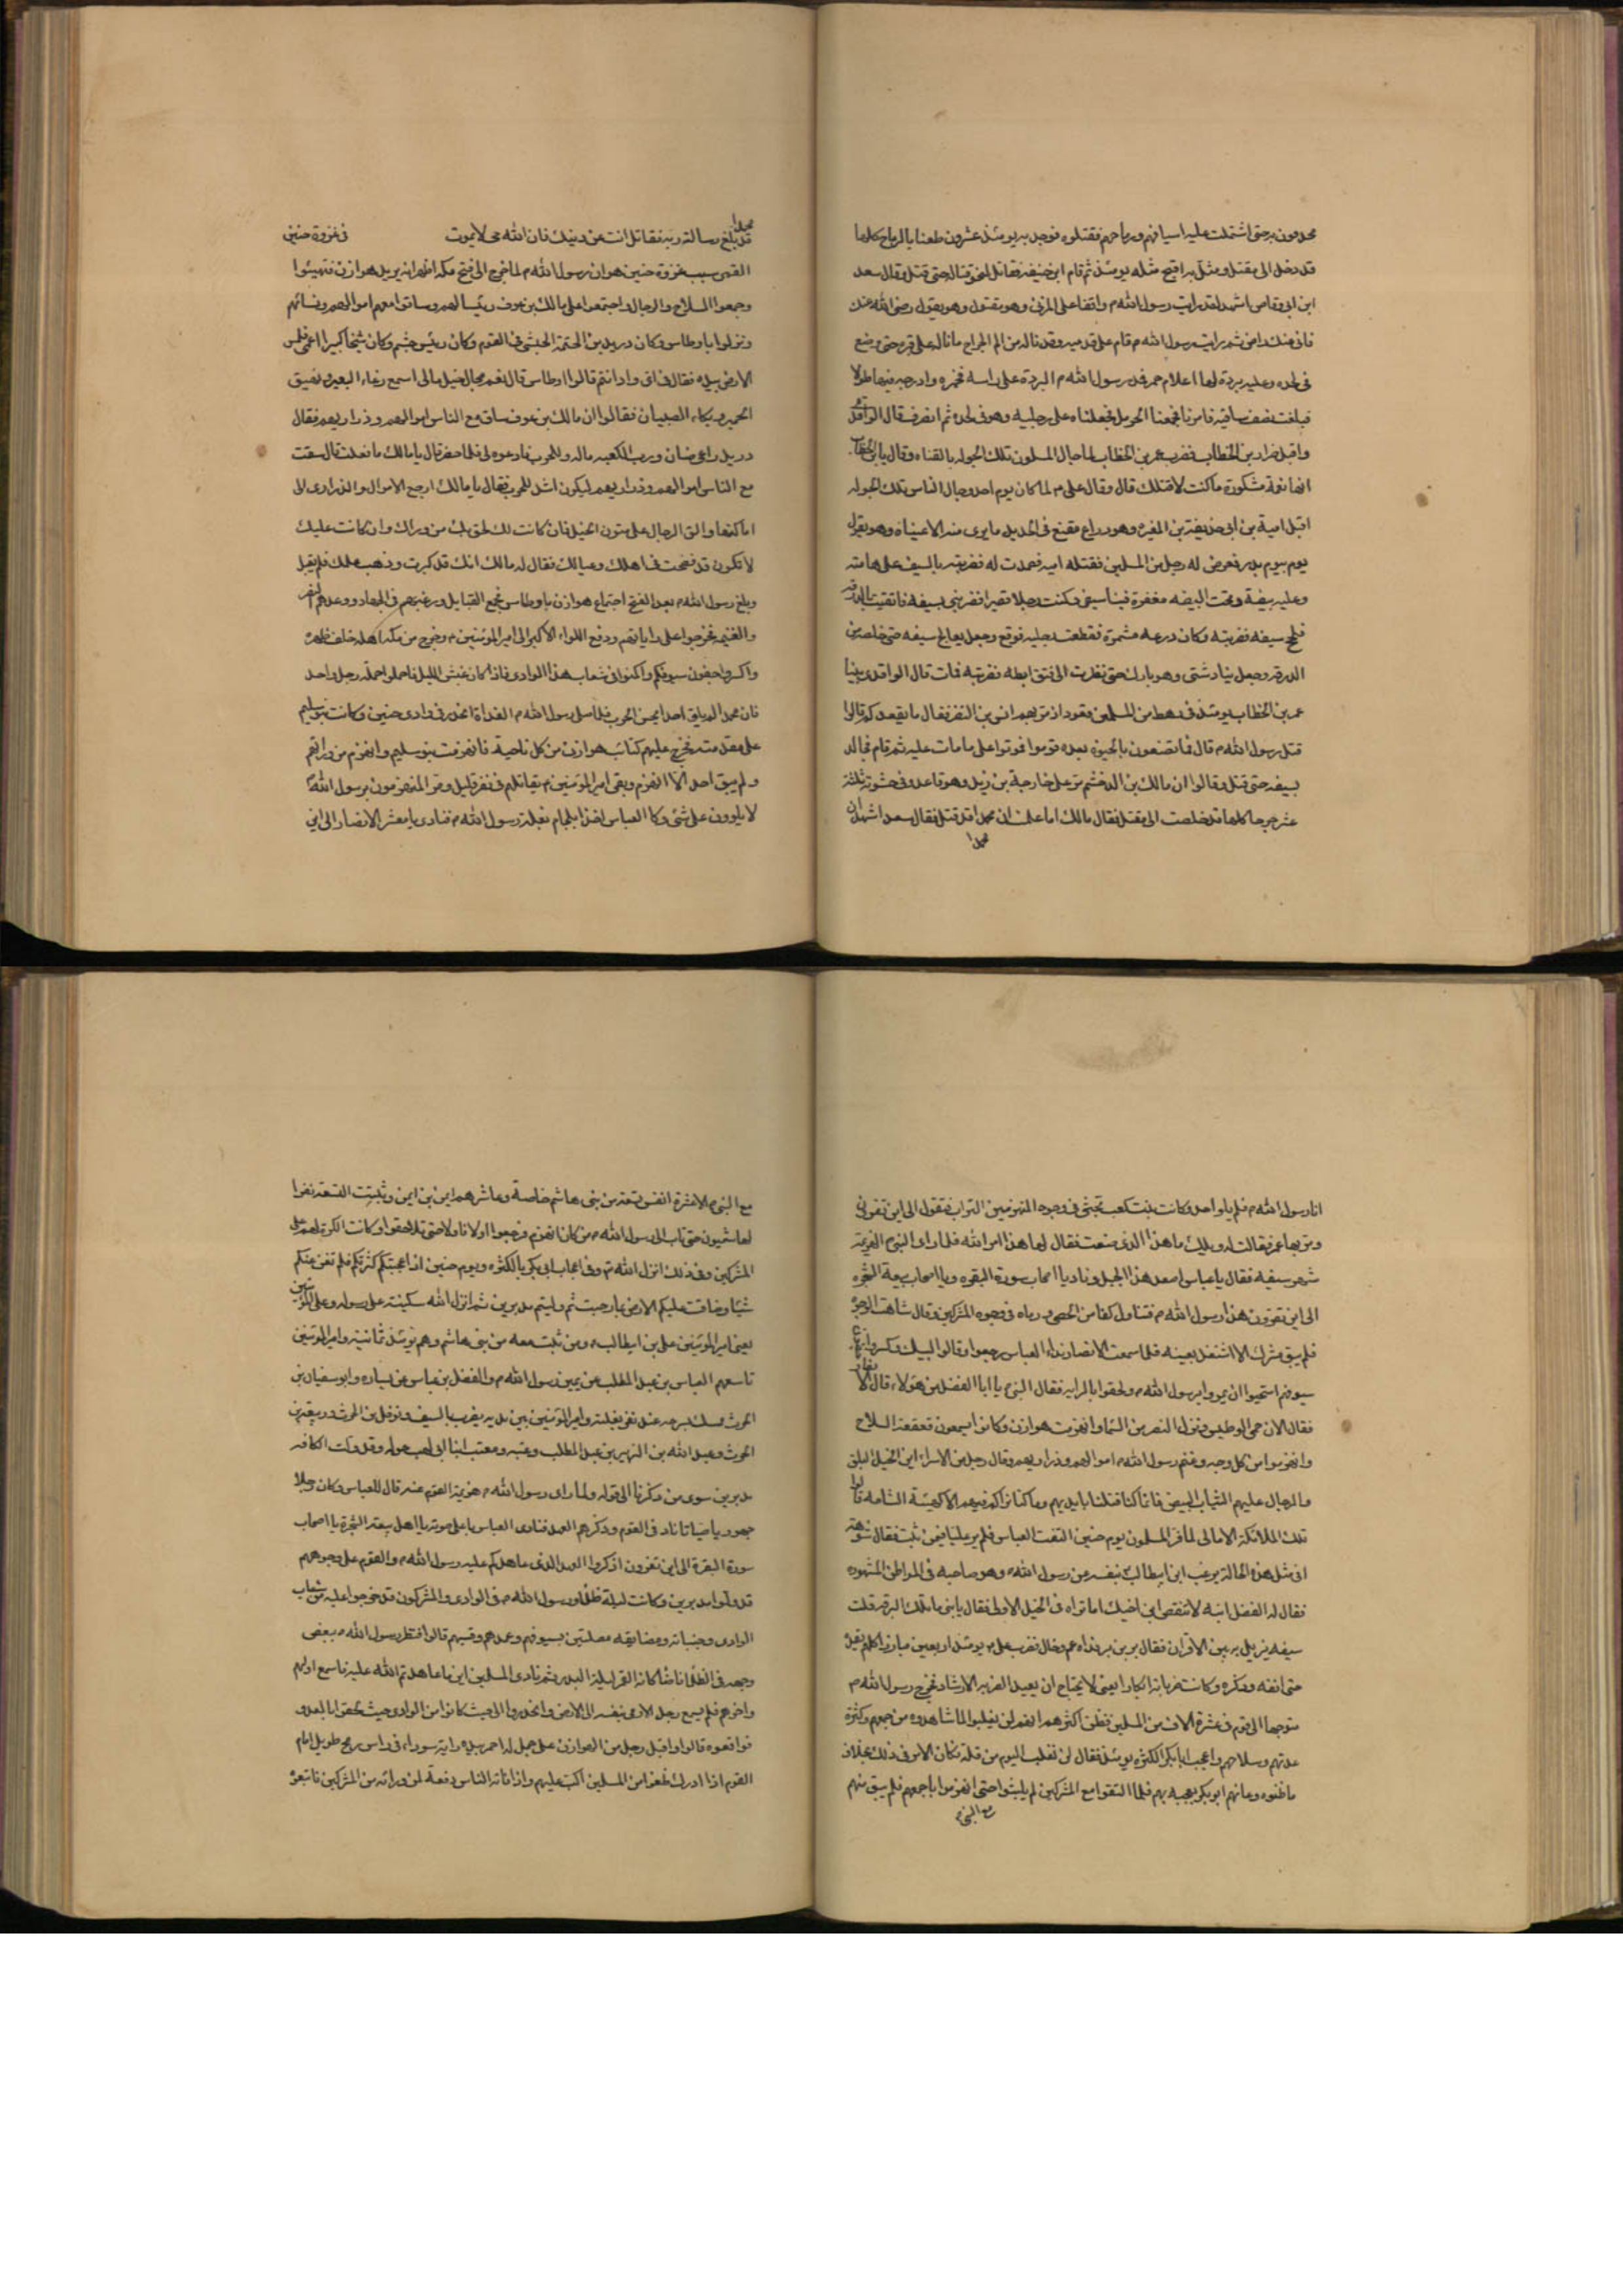 محدقون به حتى اشتملت عليه اسيافهم ورماحهم فقتلوه فوجد به يومئذ عشرون طعنا بالرماح كلها
قد دخل الى مقتل ومثل به اقبح مثله يومئذ ثم قام ابن اخيه فقاتل نحو قتاله حتى قتل وقال سعد
ابن ابى وقاص اشهد لقد رايت رسول الله ص واقفا على المزنى وهو مقتول وهو يقول رضى الله عنك
فانى عنك راض ثم رايت رسول الله ص قام على قدميه وقد ناله من الم الجراح ما ناله على قبره حتى وضع
فى لحده وعليه بردة لها اعلام حمر فمد رسول الله ص البردة على راسه فخمره وادرجه فيها طولا
فبلغت نصف ساقيه فامرنا فجمعنا الحرمل فجعلناه على رجليه وهو فى لحده ثم انصرف قال الواقدى
واقبل ضرار بن الخطاب فضرب عمر بن الخطاب لما جال المسلمون تلك الجوله بالقناه وقال يا بن الخطاب
انها نعمة مشكورة ما كنت لاقتلك قال وقال على م لما كان يوم احد وجال الناس تلك الجوله
اقبل امية بن ابى حذيفة بن المغيره وهو دارع مقنع فى الحديد ما يرى منه الا عيناه وهو يقول
يوم بيوم بدر فعرض له رجل من المسلمين فقتله اميه فصمدت له فضربته بالسيف على هامته
وعليه بيضة وتحت البيضه مغفرة فنبا سيفى وكنت رجلا قصيرا فضربنى بسيفه فاتقيت بالدرقه
فلحج سيفه فضربته وكان درعه مشمرة فقطعت رجليه فوقع وجعل يعالج سيفه حتى خلصه من
الدرقه وجعل يناوشنى وهو بارك حتى نظرت الى فتق ابطه فضربته فمات قال الواقدى بينا
عمر بن الخطاب يومئذ فى رهط من المسلمين قعود اذ مر بهم انس بن النضر فقال ما يقعدكم قالوا
قتل رسول الله ص قال فما تصنعون بالحيوة بعده قوموا فموتوا على ما مات عليه ثم قام فجالد
بسيفه حتى قتل وقالوا ان مالك بن الدخشم مر على خارجة بن زيد وهو قاعد وفى حشوته ثلثة
عشر جرحا كلها قد خلصت الى مقتل فقال مالك اما علمت ان محمدا قد قتل فقال سعد اشهد ان
محمدا
محمدا
قد بلغ رسالة ربه فقاتل انت عن دينك فان الله حى لا يموت فى غزوة حنين
القمى سبب غزوة حنين هو ان رسول الله م لما خرج الى فتح مكه اظهر انه يريد هوازن فتهيئوا
وجمعوا السلاح والرجال واجتمعوا على مالك بن عوف رئيسا لهم وساقوا معهم اموالهم ونسائهم
ونزلوا باوطاس وكان دريد بن الصمة الجشمى فى القوم وكان رئيس جشم وكان شيخا كبيرا اعمى فلمس
الارض بيده فقال فى اى واد انتم قالوا اوطاس قال نعم مجال خيل مالى اسمع رغاء البعير ونهيق
الحمير وبكاء الصبيان فقالوا ان مالك بن عوف ساق مع الناس اموالهم وذراريهم فقال
دريد راعى ضان ورب الكعبه ماله وللحرب فادعوه لى فلما حضر قال يا مالك ما فعلت قال سقت
مع الناس اموالهم وذراريهم ليكون اشد للحرب فقال يا مالك ارجع الاموال والذرارى الى
اماكنها والق الرجال على متون الخيل فان كانت لك لحق بك من وراك وان كانت عليك
لا تكون قد فضحت فى اهلك وعيالك فقال له مالك انك قد كبرت وذهب علمك فلم يقبل
وبلغ رسول الله م بعد الفتح اجتماع هوازن باوطاس فجمع القبايل ورغبهم فى الجهاد ووعدهم النصر
والغنيمه فخرجوا على راياتهم ودفع اللواء الاكبر الى امير المؤمنين م وخرج من مكه اهله خلف ظهره
واكسروا جفون سيوفكم واكمنوا فى شعاب هذا الوادى فاذا كان غبش الليل فاحملوا حملة رجل واحد
فان محمدا لم يلق احدا يحسن الحرب فلما صلى رسول الله م الغداة انحدر فى وادى حنين وكانت بنو سليم
على مقدمته فخرج عليهم كتائب هوازن من كل ناحية فانهزمت بنو سليم وانهزم من ورائهم
ولم يبق احد الا انهزم وبقى امير المؤمنين م يقاتلهم فى نفر قليل ومر المنهزمون برسول الله ص
لا يلوون على شئ وكان العباس اخذ بلجام بغلة رسول الله م فنادى يا معشر الانصار الى اين
انا رسول الله م فلم يلو احد وكانت بنت كعب تحثى فى وجوه المنهزمين التراب فتقول الى اين تفرون
ومر بها عمر فقالت له ويلك ما هذا الذى صنعت فقال لها هذا امر الله فلما راى النبى م الهزيمة
شهر سيفه فقال يا عباس اصعد هذا الجبل وناد يا اصحاب سورة البقره ويا اصحاب بيعة الشجره
الى اين تفرون هذا رسول الله م فتناول كفا من الحصى ورماه فى وجوه المشركين وقال شاهت الوجوه
فلم يبق مشرك الا اشتغل بعينه فلما سمعت الانصار نداء العباس رجعوا وقالوا لبيك وكسروا
سيوفهم استحيوا ان يمروا برسول الله م ولحقوا بالرايه فقال النبى م يا ابا الفضل من هؤلاء قال الانصار
فقال الان حمى الوطيس ونزل النصر من السماء وانهزمت هوازن وكانوا يسمعون قعقعة السلاح
وانهزموا من كل وجه وغنم رسول الله م اموالهم وذراريهم وقال رجل من الاسراء اين الخيل البلق
والرجال عليهم الثياب البيض فانما كنا قتلنا بايديهم وما كنا نراكم فيهم الا كهيئة الشامه قالوا
تلك الملائكة الامالى لما فر المسلمون يوم حنين التفت العباس فلم ير عليا فيمن ثبت فقال شوهة
افى مثل هذه الحالة يرغب ابن ابيطالب بنفسه عن رسول الله م وهو صاحبه فى المواطن المشهوره
فقال له الفضل ابنه لا تنقص ابن اخيك اما تراه فى الخيل الاولى فقال يا بنى ما تلك البرقه قلت
سيفه يزيل به بين الاقران فقال بر بن بر فداه عم وخال فضرب على م يومئذ اربعين مبارزا كلهم يقده
حتى انفه وذكره وكانت ضرباته ابكارا يعنى لا يحتاج ان يعيد الضربه الارشاد فخرج رسول الله م
متوجها الى قوم فى عشرة الاف من المسلمين فظن اكثرهم انهم لن يغلبوا لما شاهدوه من جمعهم وكثرة
عدتهم وسلاحهم واعجب ابا بكر الكثره يومئذ فقال لن نغلب اليوم من قلة فكان الامر فى ذلك بخلاف
ما ظنوه وعانهم ابو بكر بعجبه بهم فلما التقوا مع المشركين لم يلبثوا حتى انهزموا باجمعهم فلم يبق منهم
مع النبى م
مع النبى م الا عشرة انفس تسعة من بنى هاشم خاصة وعاشرهم ايمن بن ام ايمن وثبتت التسعة نفر
الهاشميون حتى ثاب الى رسول الله م من كان انهزم فرجعوا اولا فاولا حتى تلاحقوا وكانت الكرة لهم على
المشركين وفى ذلك انزل الله تعم وفى اعجاب ابى بكر بالكثره ويوم حنين اذ اعجبتكم كثرتكم فلم تغن عنكم
شيئا وضاقت عليكم الارض بما رحبت ثم وليتم مدبرين ثم انزل الله سكينته على رسوله وعلى المؤمنين
يعنى امير المؤمنين على بن ابيطالب م ومن ثبت معه من بنى هاشم وهم يومئذ ثمانية وامير المؤمنين
تاسعهم العباس بن عبد المطلب عن يمين رسول الله م والفضل بن عباس عن يساره وابو سفيان بن
الحرث ممسك بسرجه عند نفر بغلته وامير المؤمنين بين يديه يضرب بالسيف ونوفل بن الحرث وربيعة بن
الحرث وعبد الله بن الزبير بن عبد المطلب وعتبه ومعتب ابنا ابى لهب حوله وقد ولت الكافه
مدبرين سوى من ذكرنا الى قوله ولما راى رسول الله م هزيمة القوم عنه قال للعباس وكان رجلا
جهوريا صيتا ناد فى القوم وذكرهم العهد فنادى العباس باعلى صوته يا اهل بيعة الشجرة يا اصحاب
سورة البقرة الى اين تفرون اذكروا العهد الذى عاهدكم عليه رسول الله م والقوم على وجوههم
قد ولوا مدبرين وكانت ليلة ظلماء ورسول الله م فى الوادى والمشركون قد خرجوا عليه من شعاب
الوادى وجنباته ومضايقه مصلتين بسيوفهم وعمدهم وقسيهم قالوا فنظر رسول الله م ببعض
وجهه فى الظلماء فاضاء كانه القمر ليلة البدر ثم نادى المسلمين اين ما عاهدتم الله عليه فاسمع اولهم
واخرهم فلم يسمع رجل الا رمى بنفسه الى الارض وانحدروا الى حيث كانوا من الوادى حيث لحقوا بالعدو
فواقعوه قالوا واقبل رجل من هوازن على جمل له احمر بيده راية سوداء فى راس رمح طويل امام
القوم اذا ادرك ظفرا من المسلمين اكب عليهم واذا فاته الناس دفعه لمن وراءه من المشركين فاتبعوه